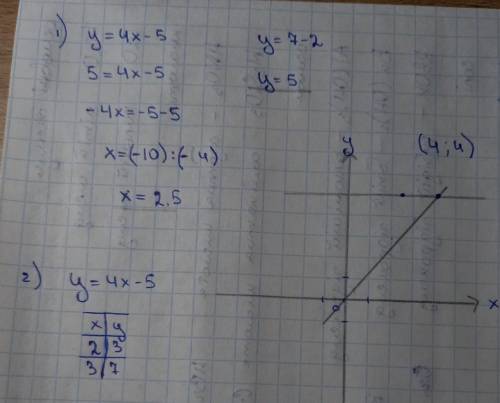 1) y = 4x - 5
5 = 4x - 5
- 4x = -5 - 5
x = (-10) : (-4)
x = 2.5
y = 7 - 2
y = 5
y
(4; 4)
x
2) y = 4x - 5
x | y
2 | 3
3 | 7